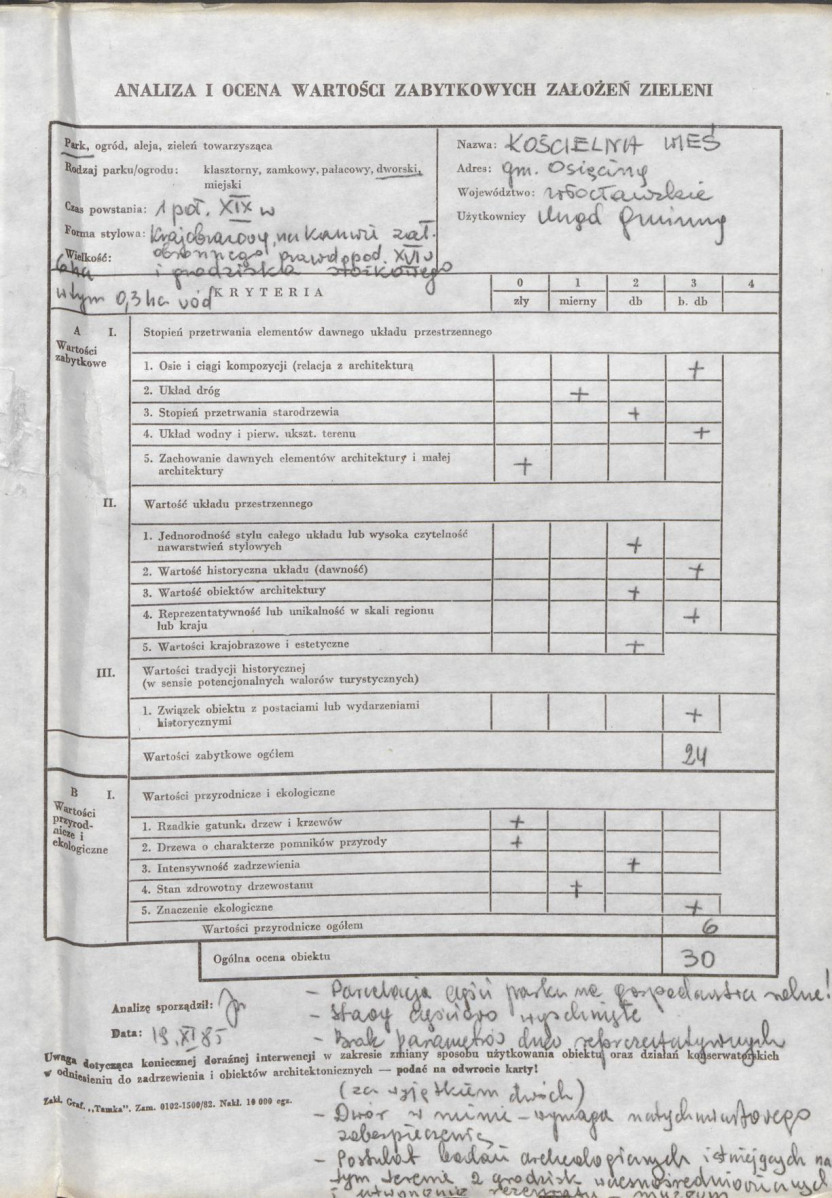 ANALIZA I OCENA WARTOŚCI ZABYTKOWYCH ZAŁOŻEŃ ZIELENI
Park, ogród, aleja, zieleń towarzysząca
Rodzaj parku/ogrodu: klasztorny, zamkowy, pałacowy, dworski,
miejski
Czas powstania: 1 poł. XIX w
Forma stylowa: krajobrazowy, na kanwie zał.
obronnego prawdopod. XVI w
Wielkość: i grodziska stożkowego
6 ha
w tym 0,3 ha wód
Nazwa: KOŚCIELNA WIEŚ
Adres: gm. Osięciny
Województwo: włocławskie
Użytkownicy Urząd Gminny
KRYTERIA
0 1 2 3 4
zły mierny db b. db
A I. Stopień przetrwania elementów dawnego układu przestrzennego
Wartości
zabytkowe
1. Osie i ciągi kompozycji (relacja z architekturą +
2. Układ dróg +
3. Stopień przetrwania starodrzewia +
4. Układ wodny i pierw. ukszt. terenu +
5. Zachowanie dawnych elementów architektury i małej
architektury +
II. Wartość układu przestrzennego
1. Jednorodność stylu całego układu lub wysoka czytelność
nawarstwień stylowych +
2. Wartość historyczna układu (dawność) +
3. Wartość obiektów architektury +
4. Reprezentatywność lub unikalność w skali regionu
lub kraju +
5. Wartości krajobrazowe i estetyczne +
III. Wartości tradycji historycznej
(w sensie potencjonalnych walorów turystycznych)
1. Związek obiektu z postaciami lub wydarzeniami
historycznymi +
Wartości zabytkowe ogółem 24
B I. Wartości przyrodnicze i ekologiczne
Wartości
przyrod-
nicze i
ekologiczne
1. Rzadkie gatunki drzew i krzewów +
2. Drzewa o charakterze pomników przyrody +
3. Intensywność zadrzewienia +
4. Stan zdrowotny drzewostanu +
5. Znaczenie ekologiczne +
Wartości przyrodnicze ogółem 6
Ogólna ocena obiektu 30
Analizę sporządził:
Data: 19.XI 85
- Parcelacja części parku na gospodarstwa rolne!
- Stawy częściowo wyschnięte
- Brak parametrów drzew reprezentatywnych
Uwaga dotycząca koniecznej doraźnej interwencji w zakresie zmiany sposobu użytkowania obiektu oraz działań konserwatorskich
w odniesieniu do zadrzewienia i obiektów architektonicznych — podać na odwrocie karty!
(za wyjątkiem dwóch)
Zakł. Graf. „Tamka". Zam. 0102-1500/82. Nakł. 10 000 egz.
- Dwór w ruinie - wymaga natychmiastowego
zabezpieczenia
- Postulat badań archeologicznych istniejących na
tym terenie 2 grodzisk wczesnośredniowiecznych
i utworzenie rezerwatu - muzeum